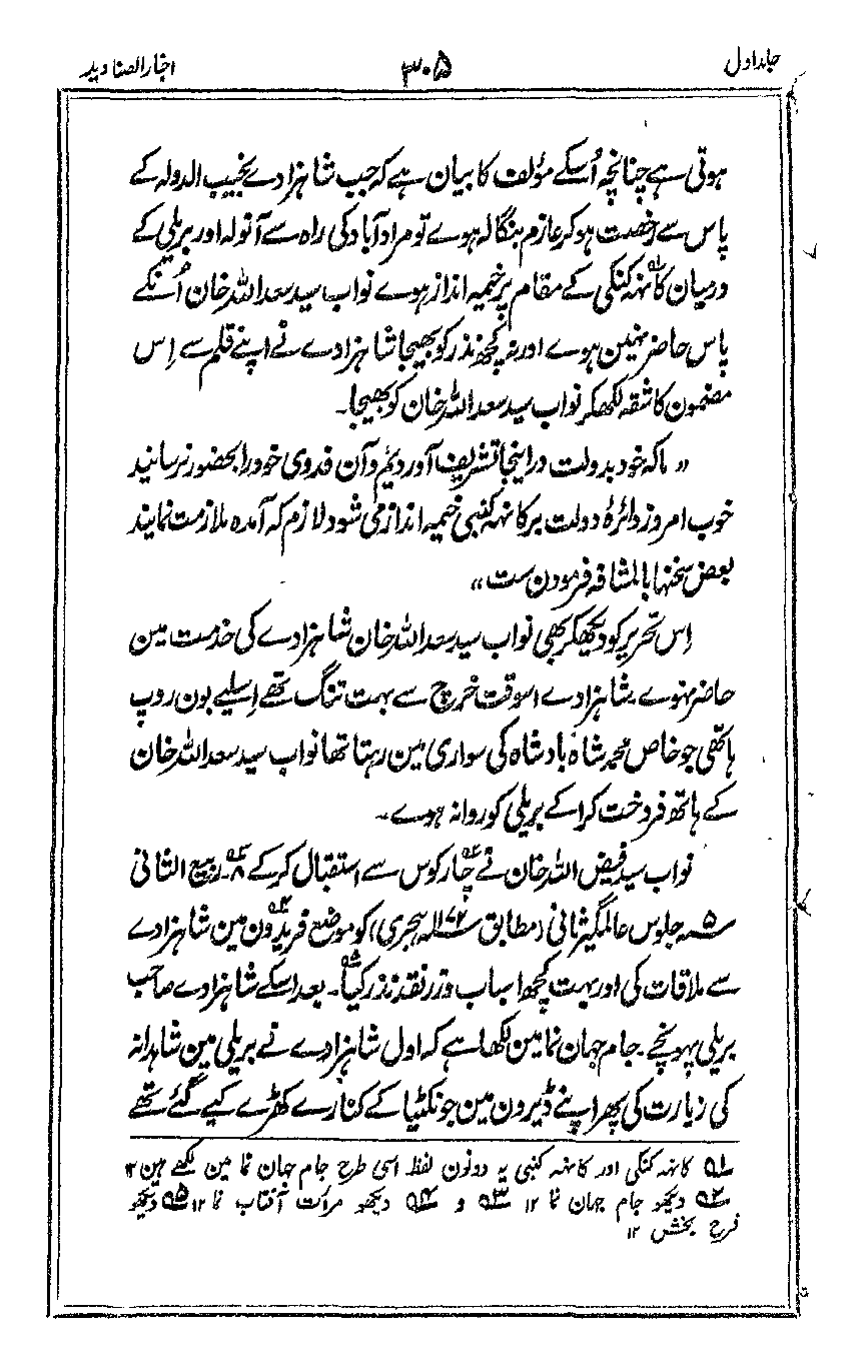 جلد اول
۳۰۵
اخبار الصنادید
ہوتی ہے چنانچہ اُسکے مؤلف کا بیان ہے کہ جب شاہزادے نجیب الدولہ کے
پاس سے رخصت ہوکر عازم بنگالہ ہوے تو مراد آباد کی راہ سے آنولہ اور بریلی کے
درمیان کانہہ کنکی کے مقام پر خیمہ انداز ہوے نواب سید سعد اللہ خان اُنکے
پاس حاضر نہین ہوے اور نہ کچھ نذر کو بھیجا شاہزادے نے اپنے قلم سے اِس
مضمون کا شقہ لکھکر نواب سید سعد اللہ خان کو بھیجا۔
" ما کہ خود بدولت در اینجا تشریف آوردیم و آن فدوی خود را بحضور نرسانید
خوب امروز دائرۂ دولت بر کانہہ کنبی خیمہ انداز می شود لازم کہ آمدہ ملازمت نمایند
بعض سخنہا بالمشافہ فرمودن ست "
اِس تحریر کو دیکھکر بھی نواب سید سعد اللہ خان شاہزادے کی خدمت مین
حاضر نہوے۔ شاہزادے اسوقت خرچ سے بہت تنگ تھے اِسلیے بون روپ
ہاتھی جو خاص محمد شاہ بادشاہ کی سواری مین رہتا تھا نواب سید سعد اللہ خان
کے ہاتھ فروخت کراکے بریلی کو روانہ ہوے۔
نواب سید فیض اللہ خان نے چار کوس سے استقبال کرکے ۸۔ ربیع الثانی
۵ سنہ جلوس عالمگیر ثانی (مطابق ۱۱۷۲ ہجری) کو موضع فریدون مین شاہزادے
سے ملاقات کی اور بہت کچھ اسباب و زر نقد نذر کیا۔ بعد اسکے شاہزادے صاحب
بریلی پہونچے۔ جام جہان نما مین لکھا ہے کہ اول شاہزادے نے بریلی مین شاہدانہ
کی زیارت کی پھر اپنے ڈیرون مین جو نکٹیا کے کنارے کھڑے کیے گئے تھے
؎۱ کانہہ کنکی اور کانہہ کنبی یہ دونون لفظ اسی طرح جام جہان نما مین لکھے ہین ۱۲
؎۲ دیکھو جام جہان نما ۱۲ ؎۳ و ؎۴ دیکھو مرآت آفتاب نما ۱۲ ؎۵ دیکھو
فرح بخش ۱۲